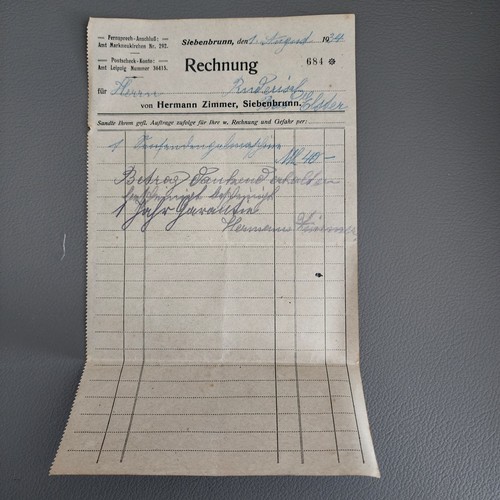 Fernsprech-Anschluß:
Amt Markneukirchen Nr. 292.
Postscheck-Konto:
Amt Leipzig Nummer 36415.
Siebenbrunn, den 1. August 1934
Rechnung
684
für Herrn
von Hermann Zimmer, Siebenbrunn.
Sandte Ihrem gefl. Auftrage zufolge für Ihre w. Rechnung und Gefahr per:
1 Sensendengelmaschine
Mk 40-
Betrag dankend erhalten
bescheinigt
1 Jahr Garantie
Hermann Zimmer